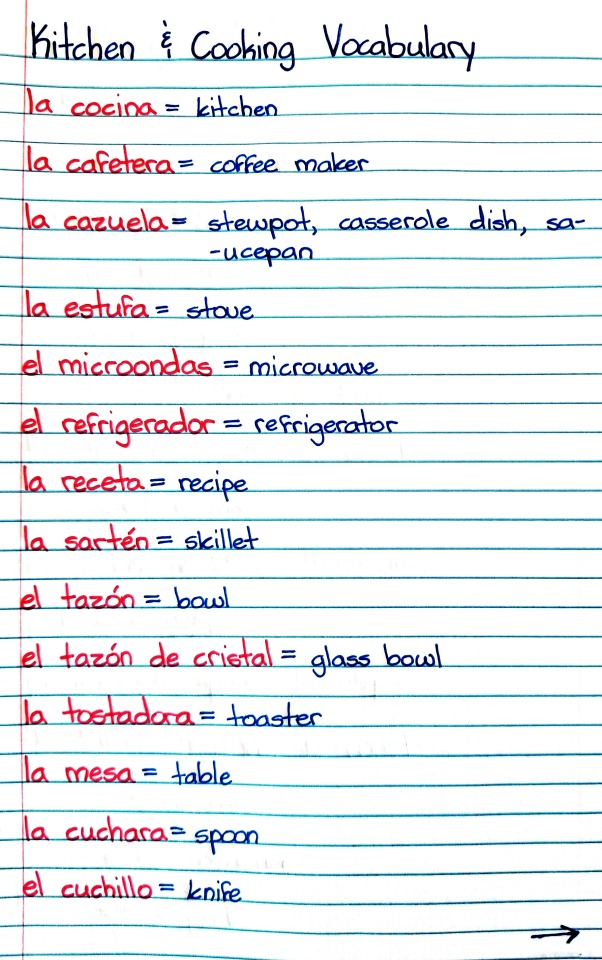 Kitchen & Cooking Vocabulary
la cocina = kitchen
la cafetera = coffee maker
la cazuela = stewpot, casserole dish, sa-
-ucepan
la estufa = stove
el microondas = microwave
el refrigerador = refrigerator
la receta = recipe
la sartén = skillet
el tazón = bowl
el tazón de cristal = glass bowl
la tostadora = toaster
la mesa = table
la cuchara = spoon
el cuchillo = knife
→